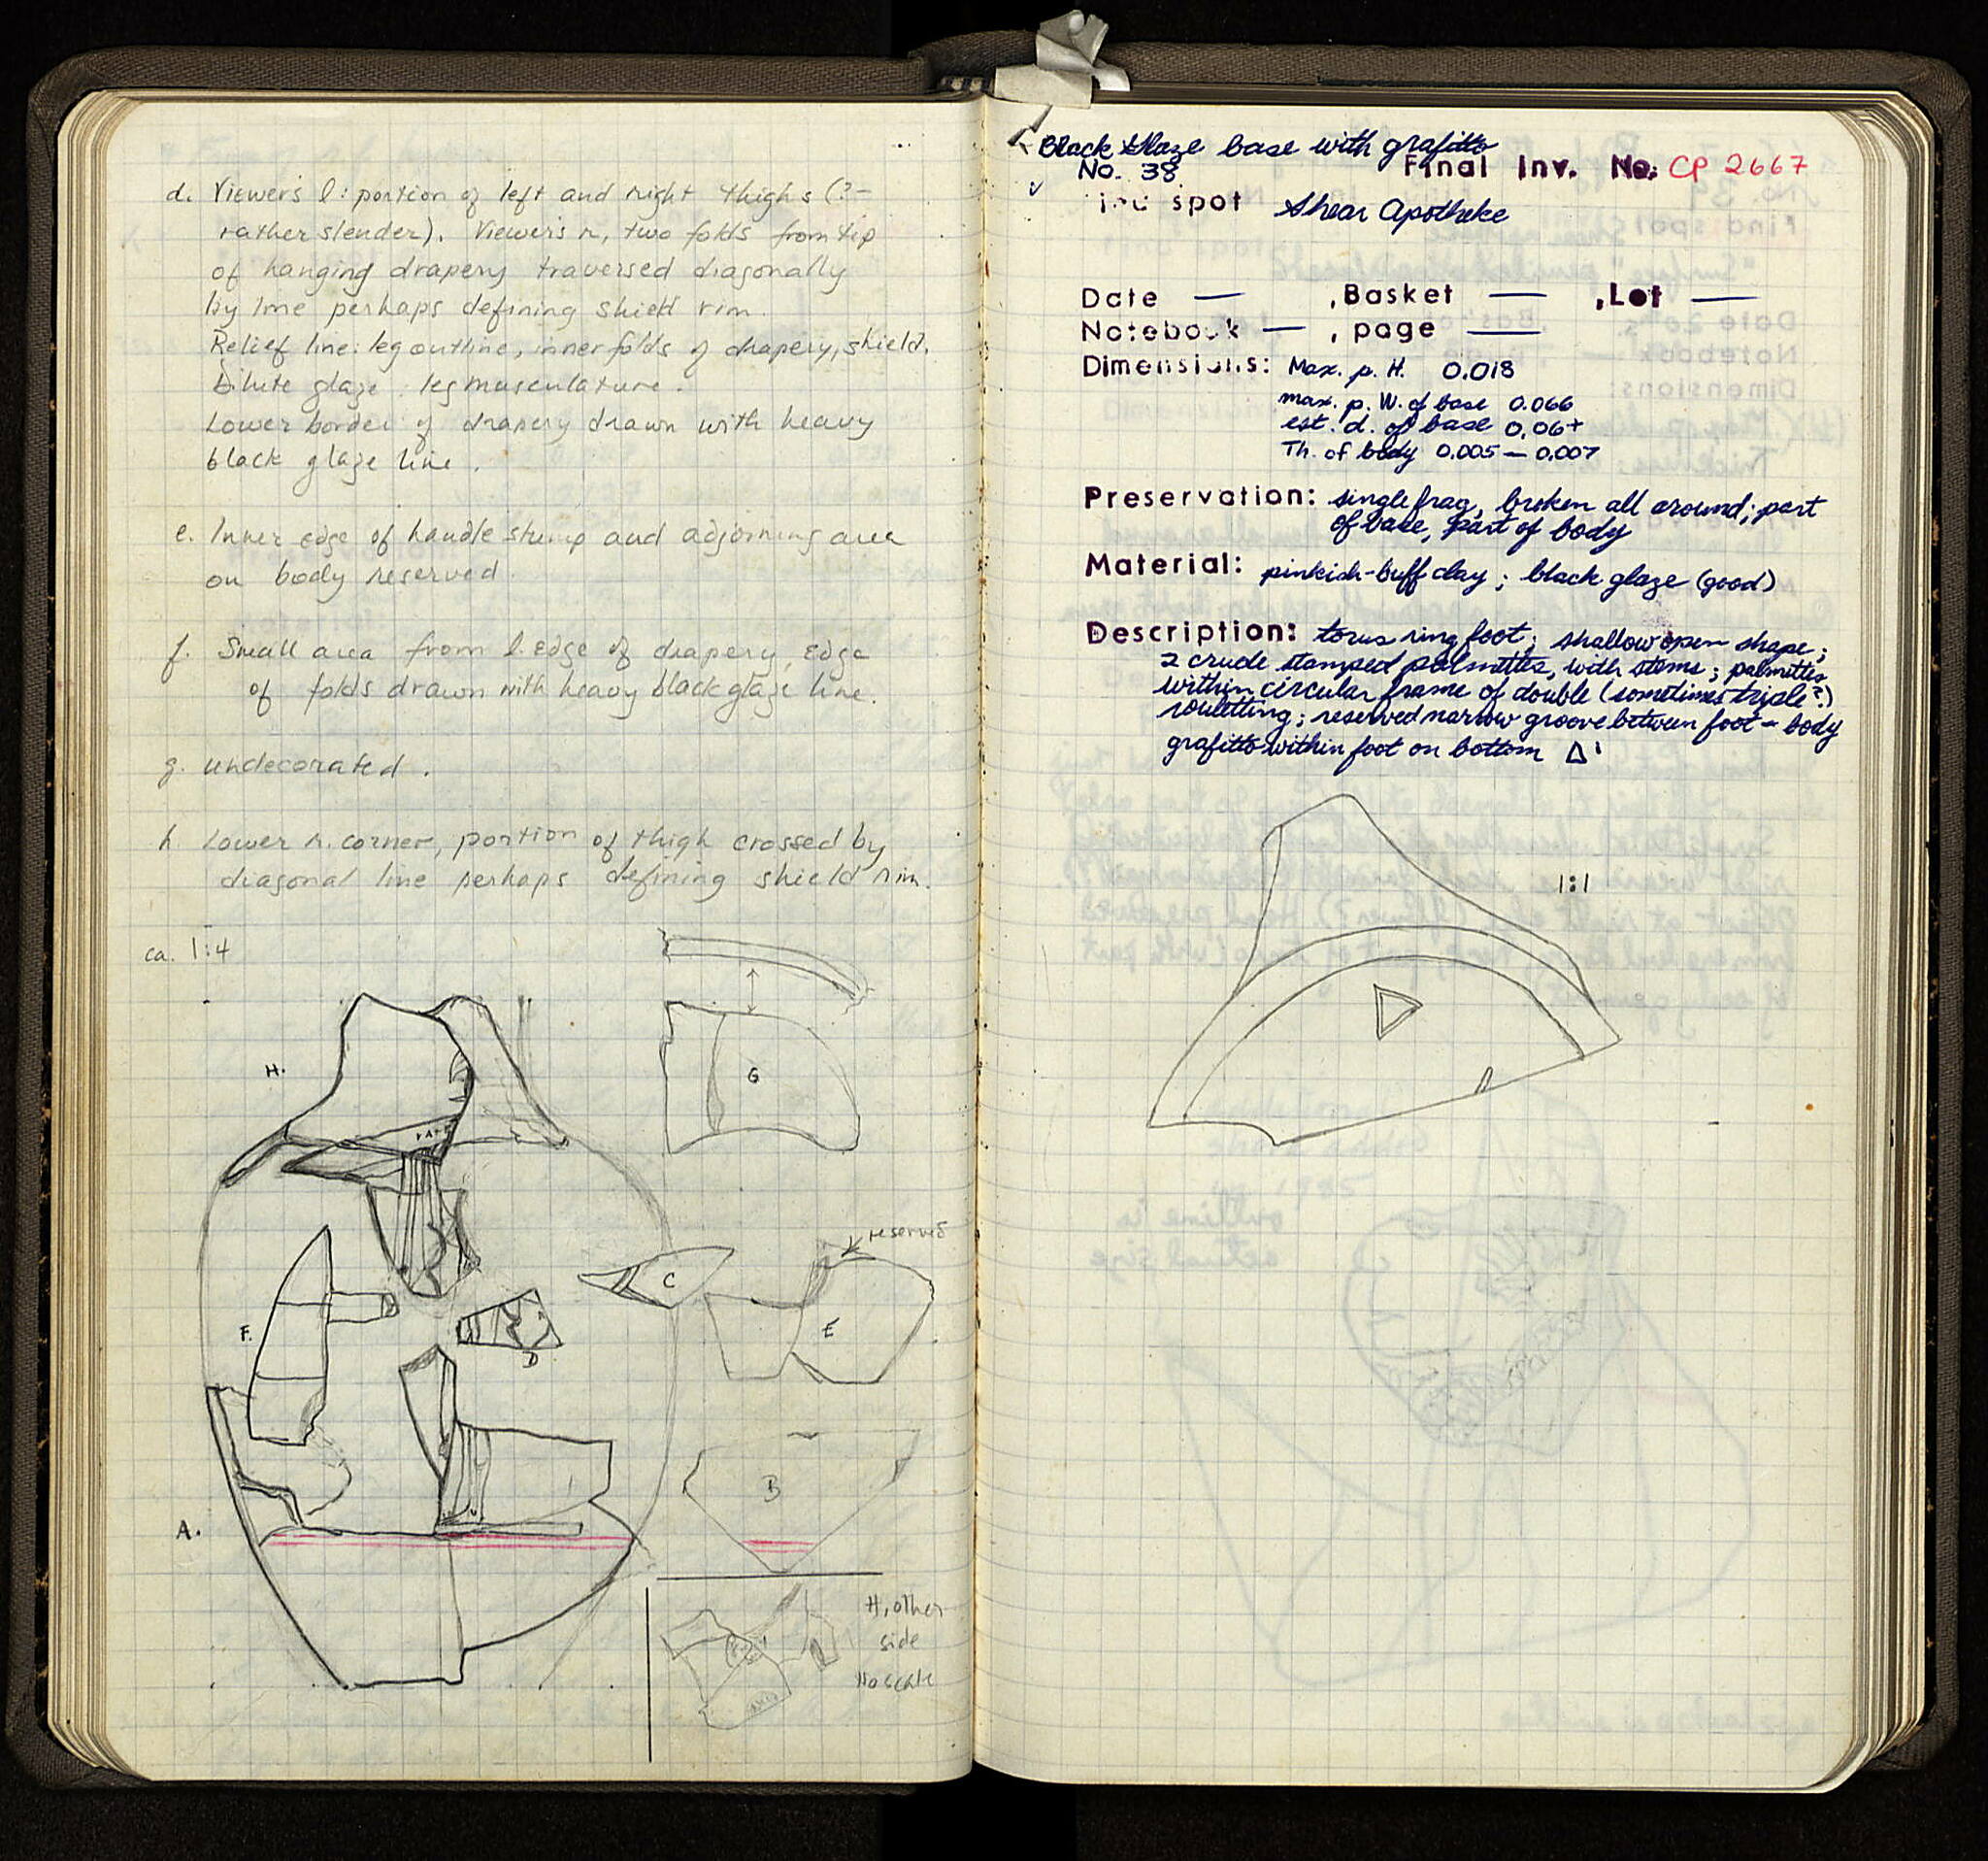 d. Viewer's l: portion of left and right thighs (?-
rather slender). Viewer's r, two folds from tip
of hanging drapery traversed diagonally
by line perhaps defining shield rim.
Relief line: leg outline, inner folds of drapery, shield.
Dilute glaze: leg musculature.
Lower border of drapery drawn with heavy
black glaze line.
e. Inner edge of handle stump and adjoining area
on body reserved.
f. Small area from l. edge of drapery, edge
of folds drawn with heavy black glaze line.
g. undecorated.
h. Lower r. corner, portion of thigh crossed by
diagonal line perhaps defining shield rim.
ca. 1:4
H.
G
reserved
C
E
F.
D
B
A.
H, other
side
No scale
Black Glaze base with grafitto
No. 38 Final Inv. No: CP 2667
spot Shear Apotheke
Date — , Basket — , Lot —
Notebook — , page —
Dimensions: Max. p. H. 0.018
max. p. W. of base 0.066
est. d. of base 0.06+
Th. of body 0.005 — 0.007
Preservation: single frag, broken all around; part
of base, part of body
Material: pinkish-buff clay; black glaze (good)
Description: torus ring foot; shallow open shape;
2 crude stamped palmettes, with stems; palmettes
within circular frame of double (sometimes triple?)
rouletting; reserved narrow groove between foot - body
grafitto within foot on bottom Δ'
1:1